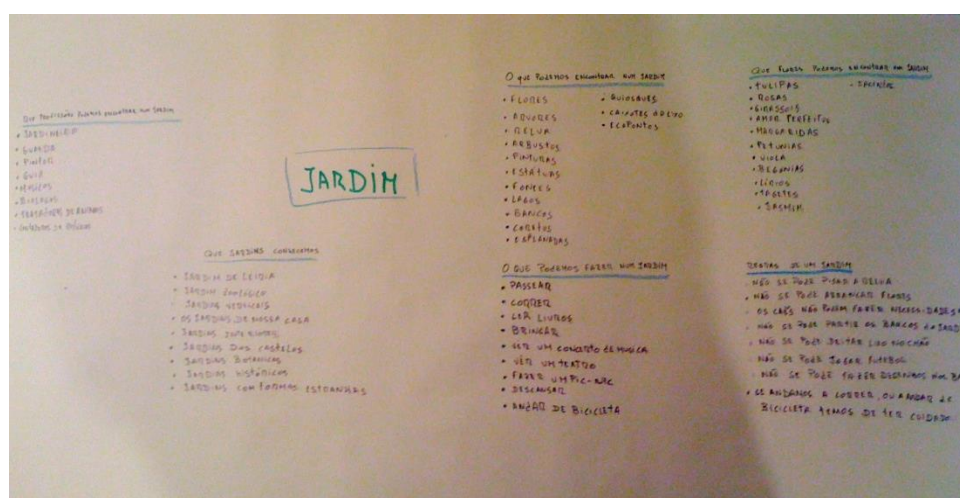 JARDIM
Que Profissões Podemos encontrar num Jardim
• JARDINEIRO
• GUARDA
• Pintor
• Guia
• Músicos
• Biólogos
• TRATADORES DE ANIMAIS
Que JARDINS conhecemos
• JARDIM DE LEIRIA
• JARDIM Zoológico
• JARDINS VERTICAIS
• OS JARDINS DE NOSSA CASA
• JARDINS DOS CASTELOS
• JARDINS Botânicos
• JARDINS históricos
• JARDINS COM FORMAS ESTRANHAS
O que Podemos encontrar num JARDIM
• FLORES
• ÁRVORES
• RELVA
• ARBUSTOS
• PINTURAS
• ESTÁTUAS
• FONTES
• LAGOS
• BANCOS
• CORETOS
• ESPLANADAS
• QUIOSQUES
• CAIXOTES DO LIXO
• ECOPONTOS
O QUE PODEMOS FAZER NUM JARDIM
• PASSEAR
• CORRER
• LER LIVROS
• BRINCAR
• VER UM CONCERTO DE MUSICA
• VER UM TEATRO
• FAZER UM PIC-NIC
• DESCANSAR
• ANDAR DE BICICLETA
QUE FLORES PODEMOS ENCONTRAR num JARDIM
• TULIPAS
• ROSAS
• GIRASSOIS
• AMOR PERFEITOS
• MARGARIDAS
• PETUNIAS
• VIOLA
• BEGONIAS
• LÍRIOS
• TAGETES
• JASMIM
• JACINTOS
REGRAS DE UM JARDIM
• NÃO SE PODE PISAR A RELVA
• NÃO SE PODE ARRANCAR FLORES
• OS CÃES NÃO PODEM FAZER NECESSIDADES
• NÃO SE PODE PARTIR OS BANCOS DO JARD
• NÃO SE PODE DEITAR LIXO NO CHÃO
• NÃO SE PODE JOGAR FUTEBOL
• NÃO SE PODE FAZER DESENHOS NOS BA
• SE ANDAMOS A CORRER, OU ANDAR DE
BICICLETA TEMOS DE TER CUIDADO